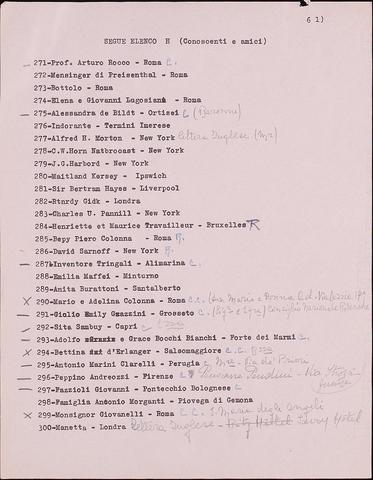 6 1)
SEGUE ELENCO H (Conoscenti e amici)
271-Prof. Arturo Rocco - Roma C.
272-Mensinger di Preisenthal - Roma
273-Bottolo - Roma
274-Elena e Giovanni Lagosiani - Roma
275-Alessandra de Bildt - Ortisei C (Baronne)
276-Indorante - Termini Imerese
277-Alfred H. Morton - New York lettera Inglese (Mr)
278-C.W.Horn Natbrooast - New York
279-J.G.Harbord - New York
280-Maitland Kersey - Ipswich
281-Sir Bertram Hayes - Liverpool
282-Rtnrdy Gidk - Londra
283-Charles U. Pannill - New York
284-Henriette et Maurice Travailleur - Bruxelles R
285-Bepy Piero Colonna - Roma R.
286-David Sarnoff - New York
287-Inventore Tringali - Alimarina C.
288-Emilia Maffei - Minturno
289-Anita Burattoni - Santalberto
290-Mario e Adelina Colonna - Roma C.C.
291-Giolio Emily Gmazzini - Grosseto C. Consiglio Nazionale
292-Sita Sambuy - Capri C
293-Adolfo e Grace Bocchi Bianchi - Forte dei Marmi C.
294-Bettina d'Erlanger - Salsomaggiore C. C.
295-Antonio Marini Clarelli - Perugia C.
296-Peppino Andreozzi - Firenze C
297-Fazzioli Giovanni - Pontecchio Bolognese C
298-Famiglia Antonio Morganti - Piovega di Gemona
299-Monsignor Giovanelli - Roma C C. S. Maria degli Angeli
300-Manetta - Londra lettera Inglese - Savoy Hotel